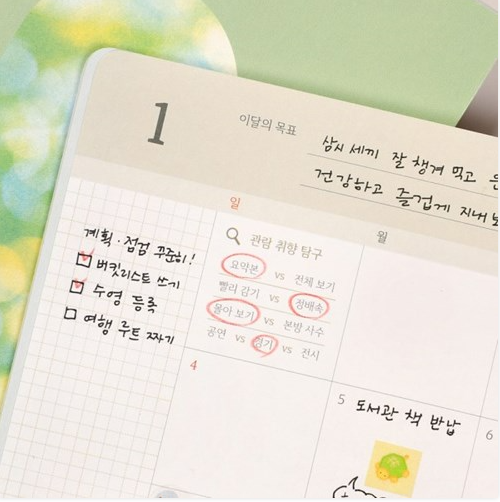 1
이달의 목표
삼시 세끼 잘 챙겨 먹고
건강하고 즐겁게 지내보
일 월
계획·점검 꾸준히!
버킷리스트 쓰기
수영 등록
여행 루트 짜기
관람 취향 탐구
요약본 vs 전체 보기
빨리 감기 vs 정배속
몰아 보기 vs 본방 사수
공연 vs 경기 vs 전시
4
5 도서관 책 반납
6